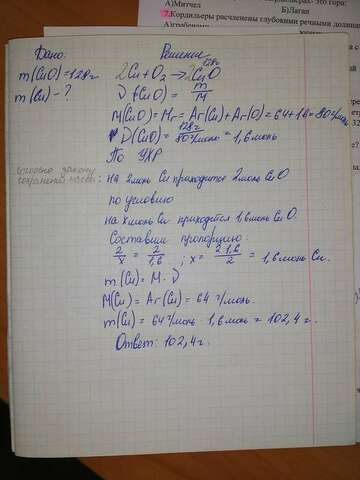 А)Митчел
Б)Логан
7.Кордильеры расчленены глубокими речными долинами
Дано:
m(CuO)=128г
m(Cu)-?
Решение
128г
2Cu+O₂→2CuO
ν(CuO)=m/M
M(CuO)=Mr=Ar(Cu)+Ar(O)=64+16=80г/моль
ν(CuO)=128г/80г/моль=1,6моль
По УХР
согласно закону
сохранения массы:
на 2моль Cu приходится 2моль CuO
по условию
на xмоль Cu приходится 1,6моль CuO.
Составим пропорцию:
2/x=2/1,6; x=2·1,6/2=1,6моль Cu.
m(Cu)=M·ν
M(Cu)=Ar(Cu)=64г/моль.
m(Cu)=64г/моль·1,6моль=102,4г.
Ответ: 102,4г.